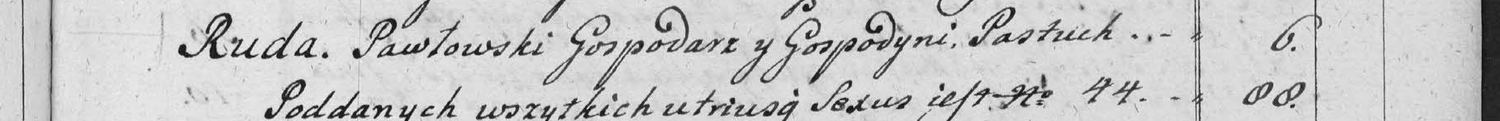 Ruda. Pawłowski Gospodarz y Gospodyni. Pastuch ..- " 6.
Poddanych wszytkich utriusq Sexus iest No 44. - " 88.